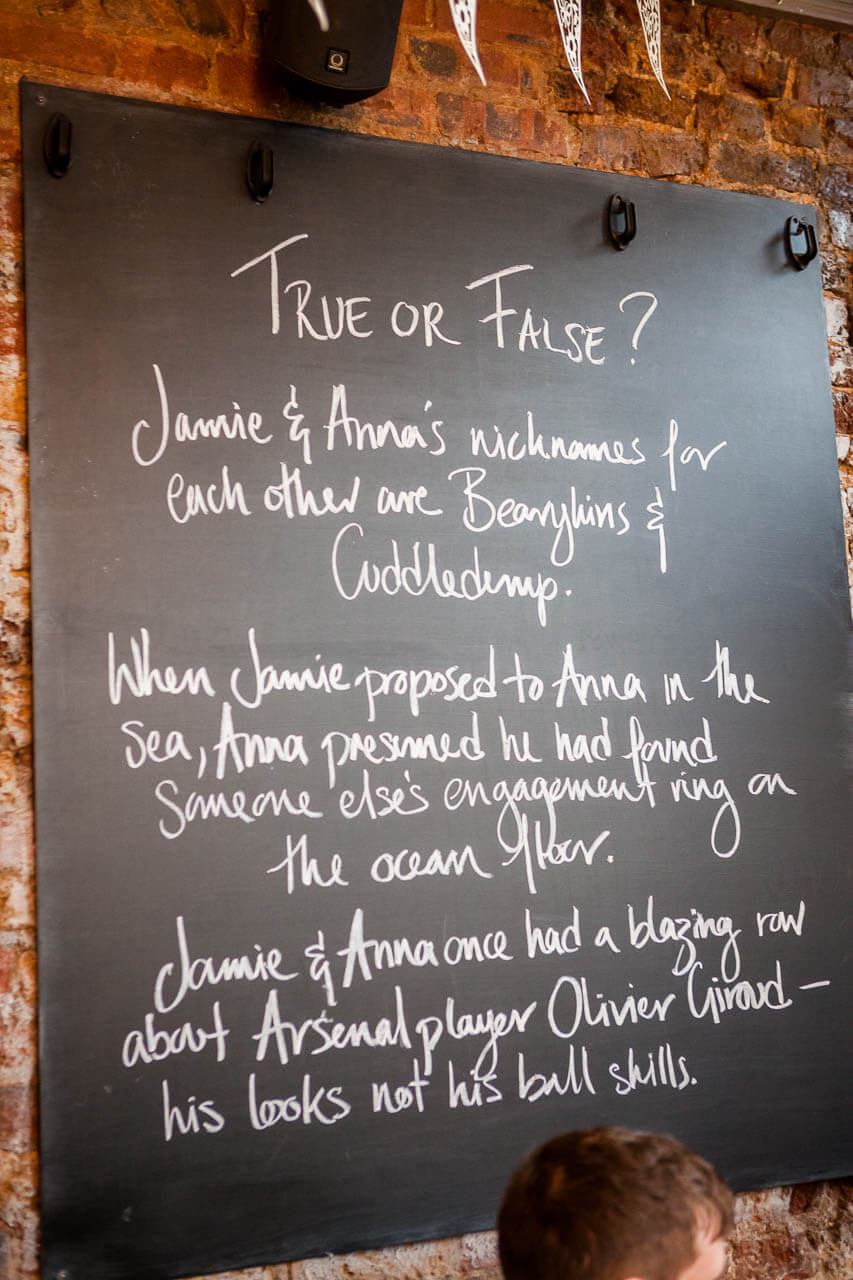 TRUE OR FALSE?
Jamie & Anna's nicknames for
each other are Bearykins &
Cuddledump.
When Jamie proposed to Anna in the
sea, Anna presumed he had found
someone else's engagement ring on
the ocean floor.
Jamie & Anna once had a blazing row
about Arsenal player Olivier Giroud –
his looks not his ball skills.